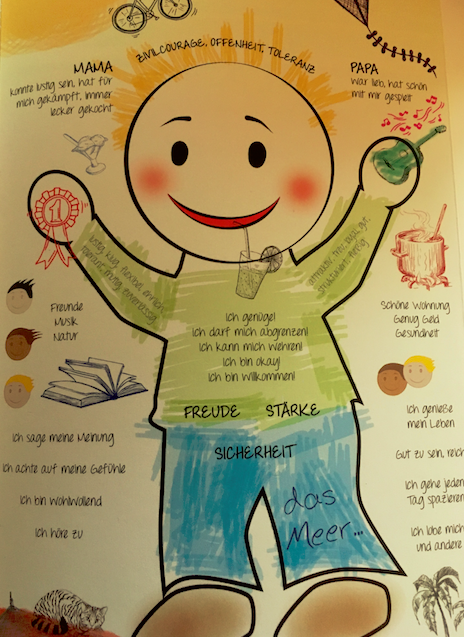 ZIVILCOURAGE, OFFENHEIT, TOLERANZ
MAMA
konnte lustig sein, hat für
mich gekämpft, immer
lecker gekocht
PAPA
war lieb, hat schön
mit mir gespielt
1
lustig, klug, flexibel, ehrlich
Freunde
Musik
Natur
Schöne Wohnung
Genug Geld
Gesundheit
Ich genüge!
Ich darf mich abgrenzen!
Ich kann mich wehren!
Ich bin okay!
Ich bin willkommen!
FREUDE STÄRKE
SICHERHEIT
das
Meer...
Ich sage meine Meinung
Ich achte auf meine Gefühle
Ich bin wohlwollend
Ich höre zu
Ich genieße
mein Leben
Gut zu sein, reich
Ich gehe jeden
Tag spazieren
Ich lobe mich
und andere